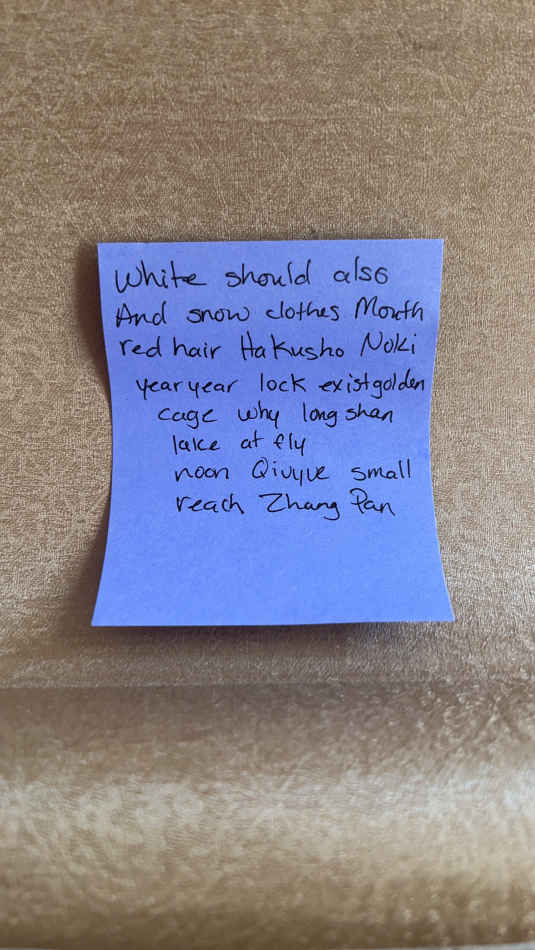 White should also
And snow clothes Mouth
red hair Hakusho Noki
year year lock exist golden
cage why long shan
lake at fly
noon Qiuyue small
reach Zhang Pan